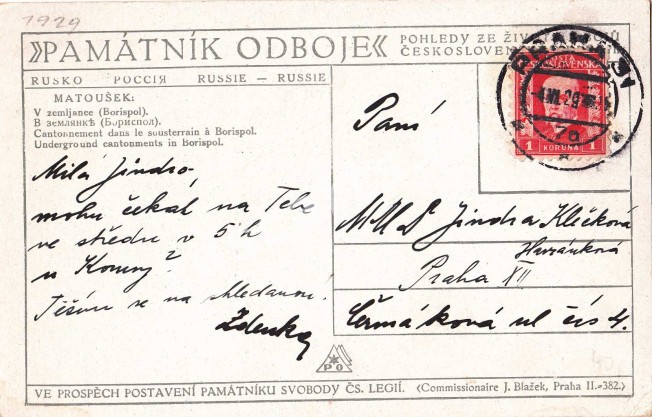 1929
»PAMÁTNÍK ODBOJE«
POHLEDY ZE
ČESKOSLOVEN
RUSKO РОССІЯ RUSSIE — RUSSIE
MATOUŠEK:
V zemljance (Borispol).
В землянкѣ (Бориспол).
Cantonnement dans le sousterrain à Borispol.
Underground cantonments in Borispol.
Milá Jindro,
mohu čekat na Tebe
ve středu v 5 h
u Koruny?
Těším se na shledanou!
Zdenka
PRAHA 31
7a
1 KORUNA 1
Paní
MUDr Jindra Klečková
Praha XII
Čermáková ul čís 4.
PO
VE PROSPĚCH POSTAVENÍ PAMÁTNÍKU SVOBODY ČS. LEGIÍ. (Commissionaire J. Blažek, Praha II.-382.)